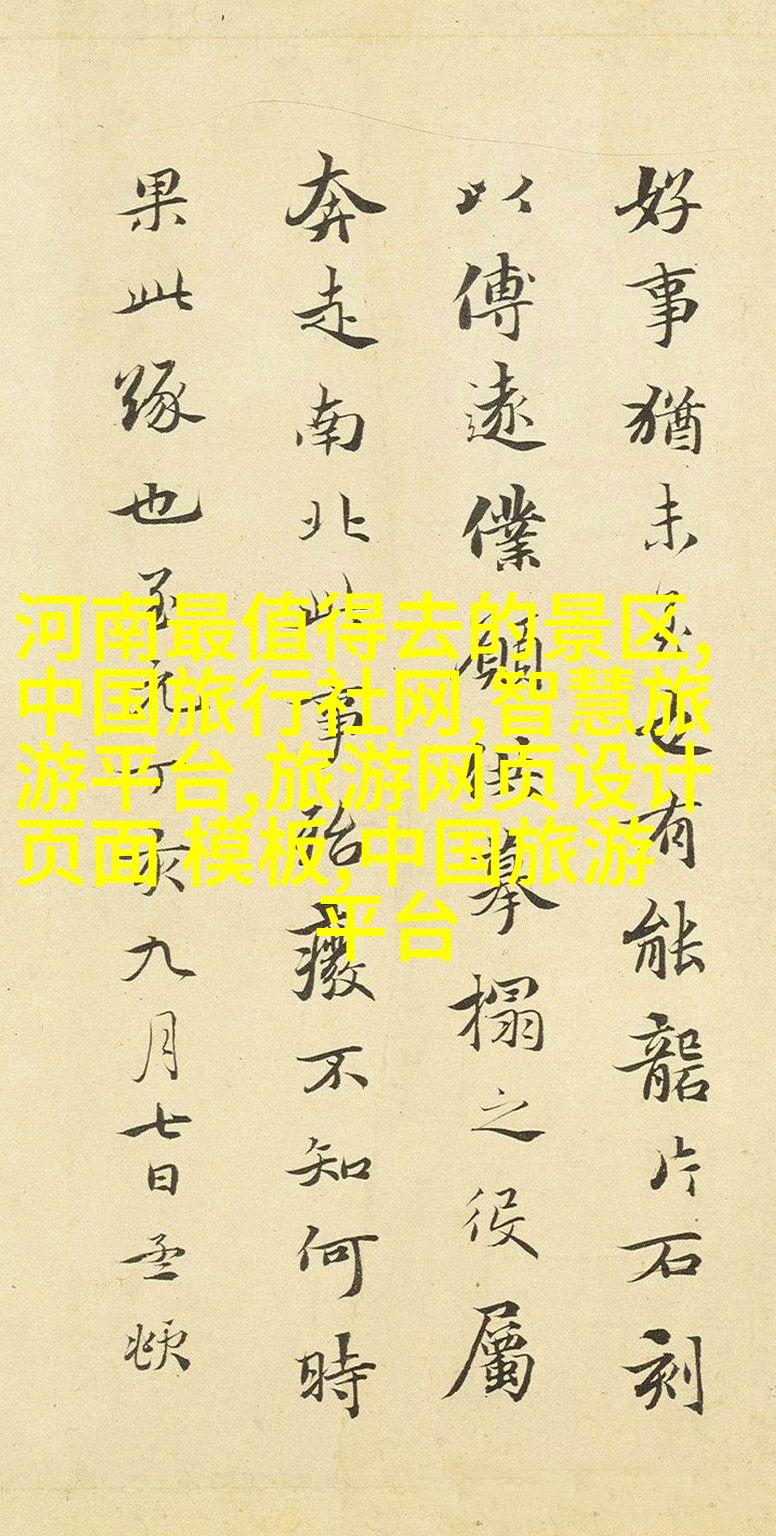 好事猶未也有能礱片石刻
以傳遠僕願供摹搨之役屬
奔走南北此事殆癈不知何時
果此緣也至元丁亥九月七日孟頫
河南最值得去的景区,
中国旅行社网,智慧旅
游平台,旅游网页设计
页面 模板,中国旅游
平台